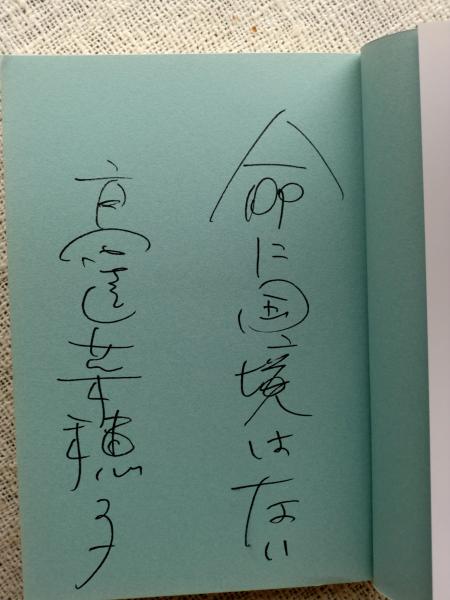 命に国境はない
高遠菜穂子